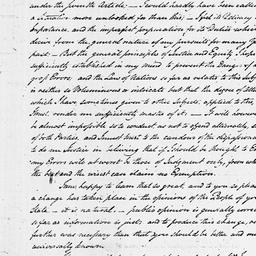 under the seventh Article — I would hardly have been called
a situation more unlooked for than this; — Yet its
importance, and the imperfect preparation for its Duties which
derive from the general nature of my pursuits for many Years
past — But the general principles of Justice and Equity I hope
sufficiently established in my mind to prevent the Danger of
of Error, and the Law of Nations so far as relates to this Subject
is neither so Voluminous or intricate but that the degree of attention
which I have sometimes given to other Subjects, applied to this,
must render me sufficiently master of it. It will however
be almost impossible so to conduct as not to offend alternately,
of both Parties, and I must trust to the candour of the dispassionate
to do me Justice in believing that if I should be thought to Err
my Errors will at worst be those of Judgment only, from which
the best and the wisest can claim no Exemption.
I am happy to learn that so great, and to you so pleasing
a change has taken place in the opinions of the People of your
State — it is natural — public opinion is generally correct
so far as information is just, and to produce this change, no
further was necessary than that you should be better and more
universally known